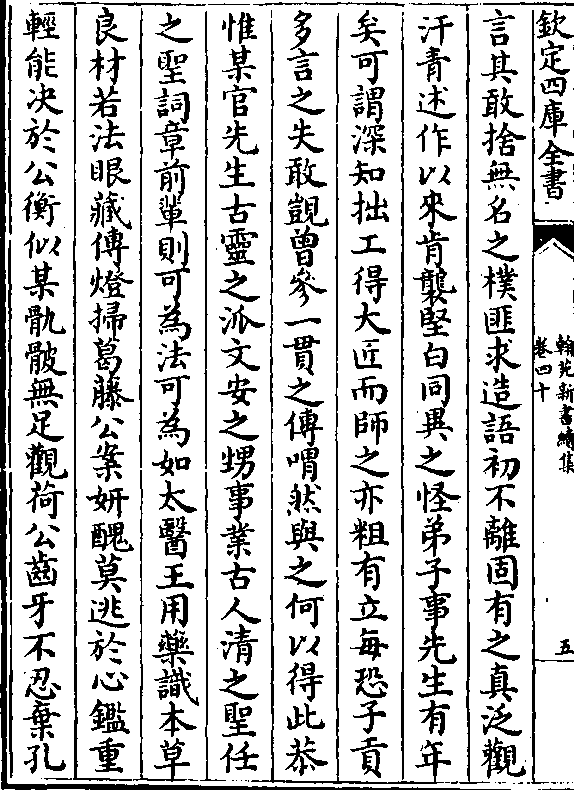 欽定四庫全書
翰苑新書續集
卷四十
五
言其敢捨無名之樸匪求造語初不離固有之真泛觀
汗青述作以來肯襲堅白同異之怪弟子事先生有年
矣可謂深知拙工得大匠而師之亦粗有立每恐子貢
多言之失敢覬曾參一貫之傳喟然與之何以得此恭
惟某官先生古靈之派文安之甥事業古人清之聖任
之聖詞章前輩則可為法可為如太醫王用藥識本草
良材若法眼藏傳燈掃葛藤公案妍醜莫逃於心鑑重
輕能决於公衡似某骫骳無足觀荷公齒牙不忍棄孔